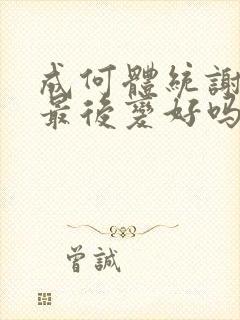 成何體統謝
最後變好嗎
曾誠